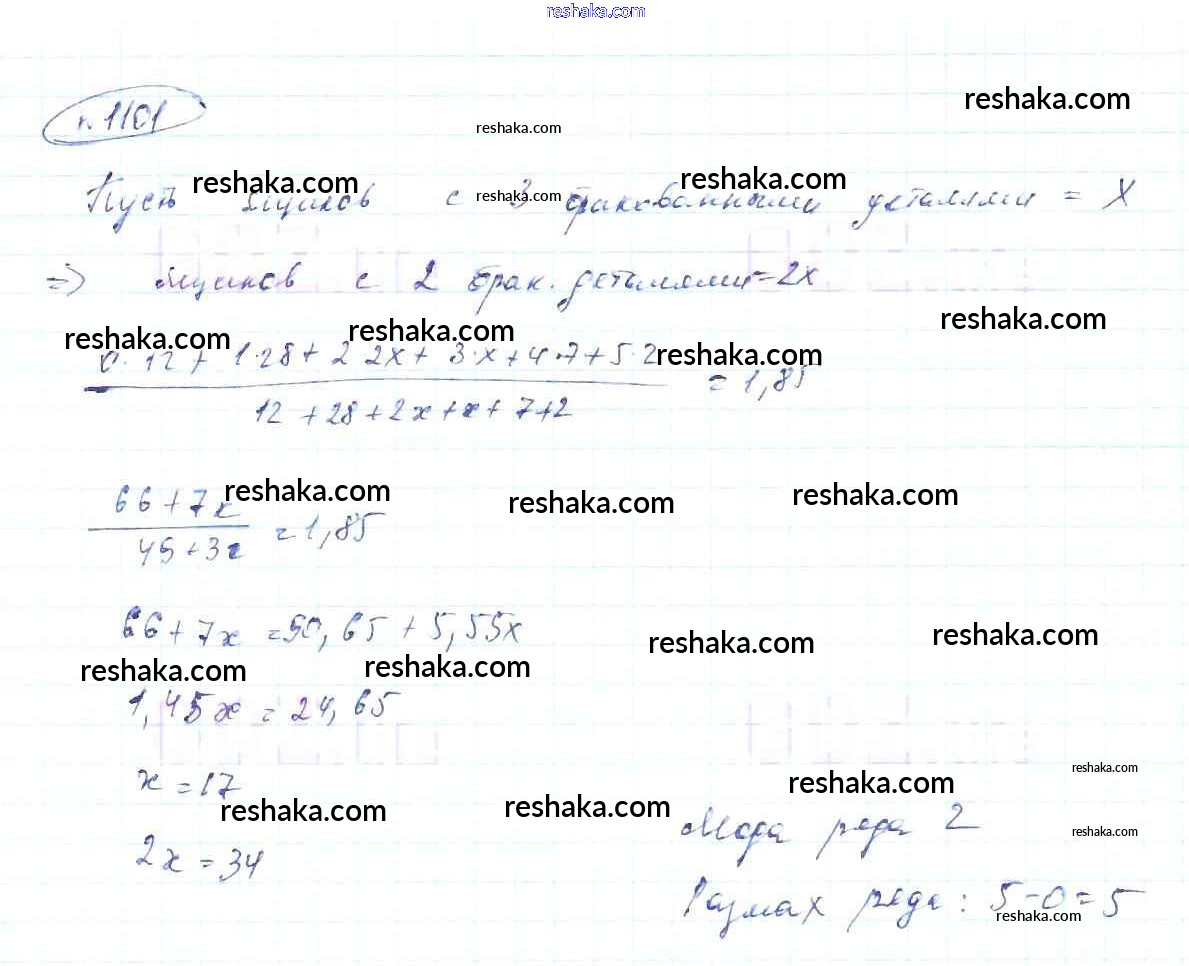 reshaka.com
n. 1101
reshaka.com
reshaka.com
Пусть ящиков с 3 бракованными деталями = X
reshaka.com
reshaka.com
reshaka.com
=> ящиков с 2 брак. деталями = 2x
reshaka.com
reshaka.com
reshaka.com
reshaka.com
0·12 + 1·28 + 2·2x + 3·x + 4·7 + 5·2
= 1,85
12 + 28 + 2x + x + 7 + 2
reshaka.com
reshaka.com
reshaka.com
66 + 7x
= 1,85
49 + 3x
66 + 7x = 90,65 + 5,55x
reshaka.com
reshaka.com
reshaka.com
reshaka.com
1,45x = 24,65
reshaka.com
x = 17
reshaka.com
reshaka.com
reshaka.com
Мода ряда 2
reshaka.com
2x = 34
Размах ряда: 5-0=5
reshaka.com